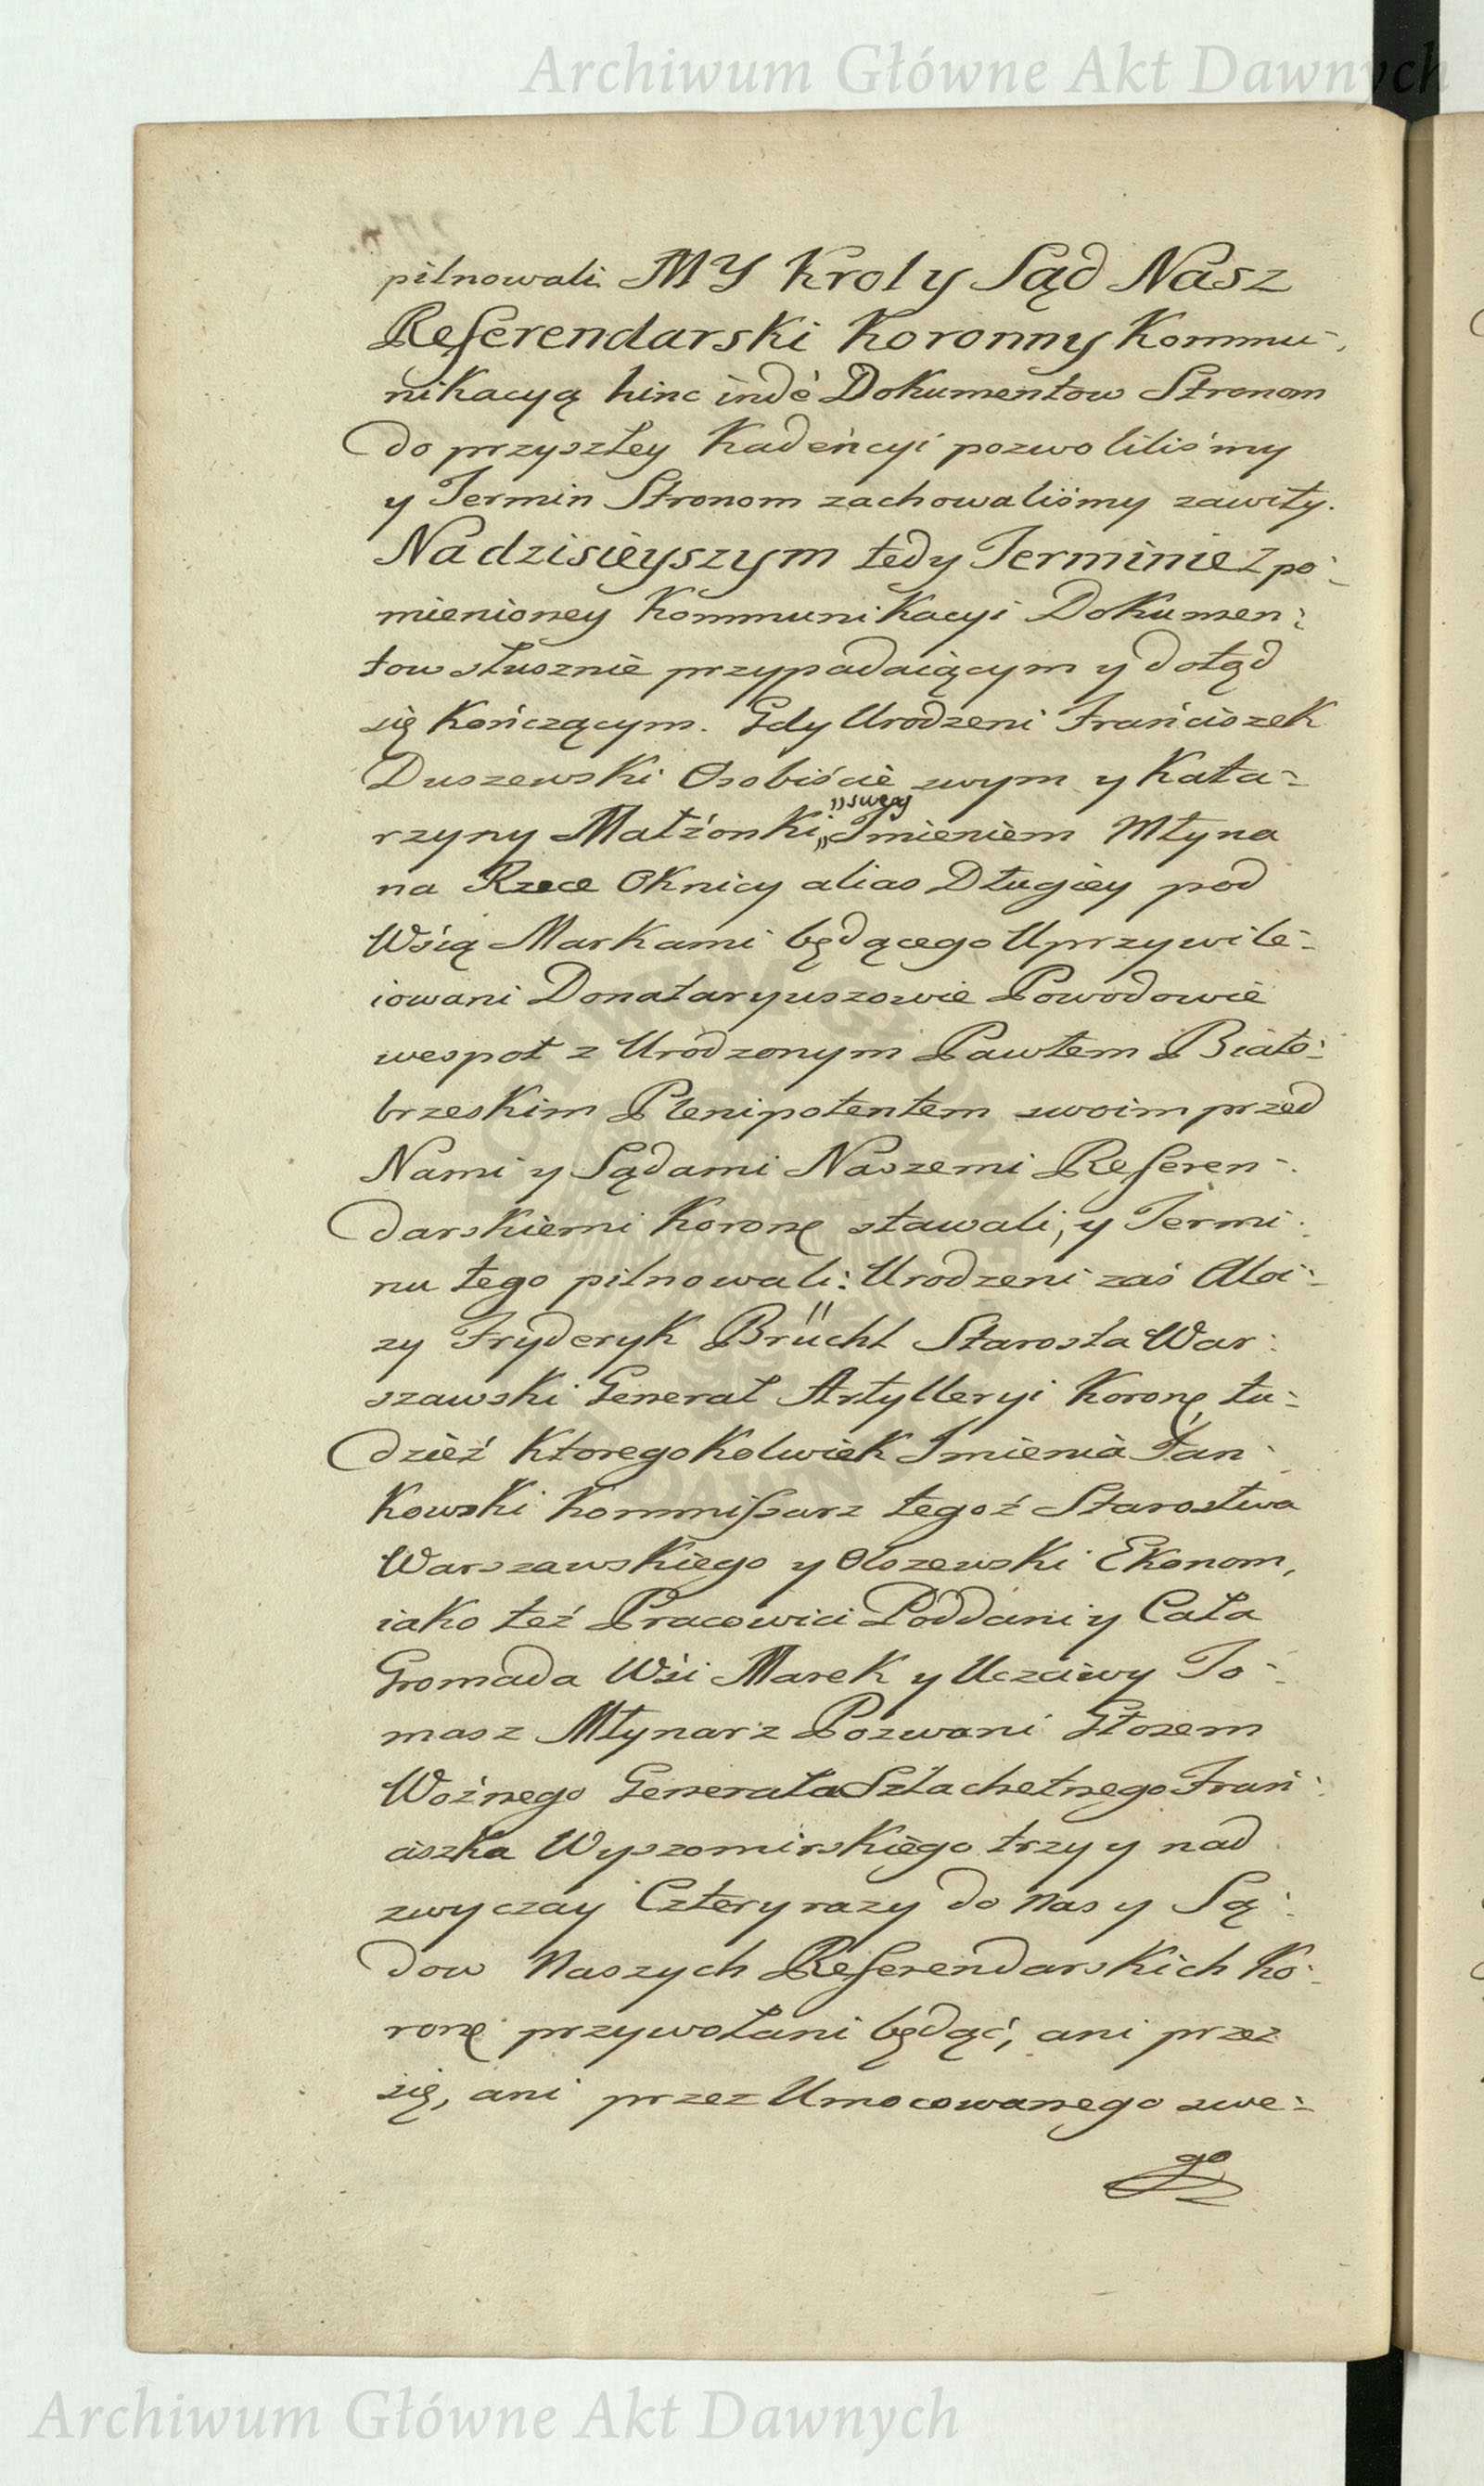 Archiwum Główne Akt Dawnych
pilnowali. MY Krol y Sąd Nasz
Referendarski Koronny Kommu-
nikacyą hinc indè Dokumentow Stronom
do przyszłey Kadeńcyi pozwoliliśmy
y Termin Stronom zachowaliśmy zawity.
Na dzisieyszym tedy Terminie z po-
mienioney Kommunikacyi Dokumen-
tow słusznie przypadaiącym y dotąd
się kończącym. Gdy Urodzeni Frańciszek
Duszewski Osobiście swym y Kata-
rzyny Małżonki „swey Imieniem Młyna
na Rzece Oknicy alias Długiey pod
Wśią Markami będącego Uprzywile-
iowani Donataryuszowie Powodowie
wespoł z Urodzonym Pawłem Biało-
brzeskim Plenipotentem swoim przed
Nami y Sądami Naszemi Referen-
darskiemi Koronę stawali, y Termi-
nu tego pilnowali: Urodzeni zaś Aloi-
zy Fryderyk Brücht Starosta War-
szawski Generał Artylleryi Koronę, tu-
dzież ktoregokolwiek Imienia Jan-
kowski Kommissarz tegoż Starostwa
Warszawskiego y Olszewski Ekonom,
iako też Pracowici Poddani y Cała
Gromada Wśi Marek y Uczciwy To-
masz Młynarz Pozwani Głosem
Woźnego Generała Szlachetnego Frań-
ciszka Wyszomirskiego trzy y nad
zwyczay Cztery razy do Nas y Są-
dow Naszych Referendarskich Ko-
ronę przywołani będąć, ani przez
się, ani przez Umocowanego swe-
go
Archiwum Główne Akt Dawnych